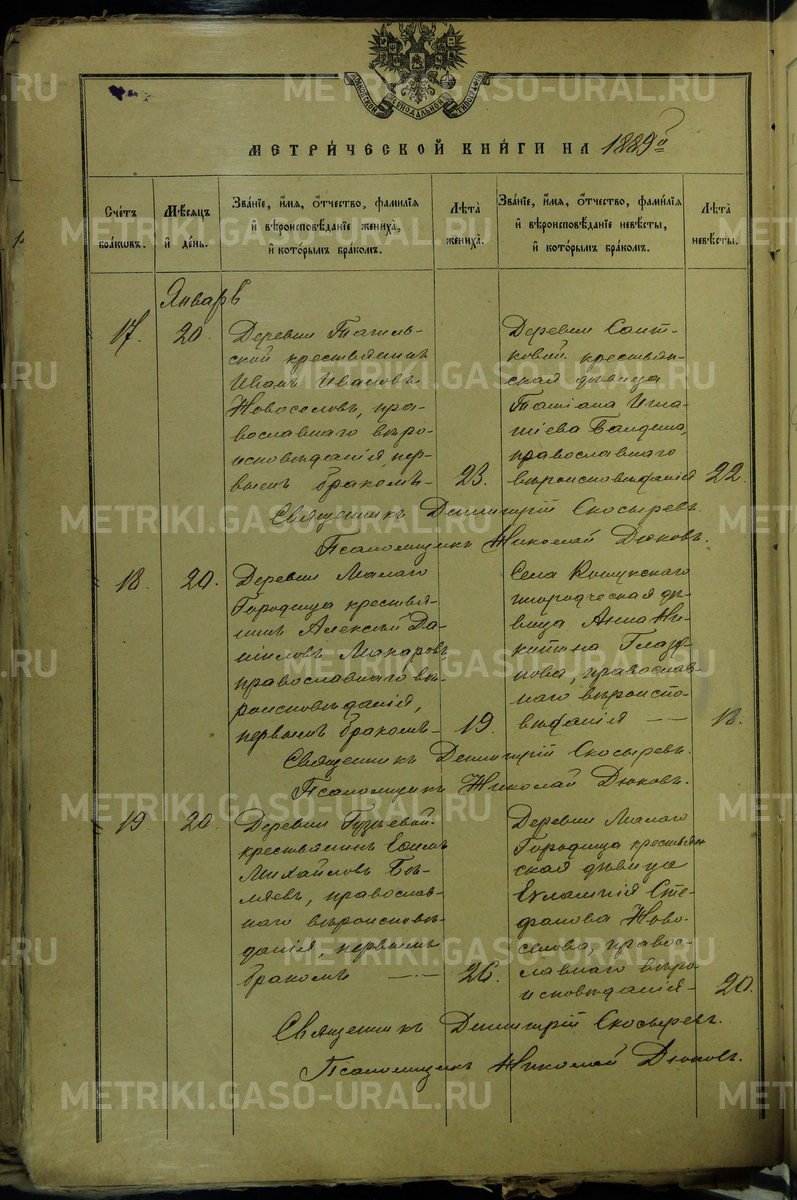 МЕТРИЧЕСКОЙ КНИГИ НА 1889й
Счетъ браковъ.
Мѣсяцъ и день.
Званіе, имя, отчество, фамилія и вѣроисповѣданіе жениха, и которымъ бракомъ.
Лѣта жениха.
Званіе, имя, отчество, фамилія и вѣроисповѣданіе невѣсты, и которымъ бракомъ.
Лѣта невѣсты.
Январь
17. 20.
Деревни Тагиль-
ской крестьянинъ
Иванъ Ивановъ
Новоселовъ, пра-
вославнаго вѣро-
исповѣданія, пер-
вымъ бракомъ-
23.
Деревни
крестьян-
ская дѣвица
Татіана Игна-
тіева
православнаго
вѣроисповѣданія
22.
Священникъ Димитрій Скосыревъ.
Псаломщикъ Николай Дюковъ.
18. 20.
Деревни Малаго
Городища крестья-
нинъ Алексѣй Да-
ниловъ Макаровъ,
православнаго вѣ-
роисповѣданія,
первымъ бракомъ-
19.
Села Кошукскаго
инородческая дѣ-
вица Анна Ни-
китина Глазу-
нова, православ-
наго вѣроиспо-
вѣданія
18.
Священникъ Димитрій Скосыревъ.
Псаломщикъ Николай Дюковъ.
19 20.
Деревни
крестьянинъ Ефимъ
Михайловъ Бѣ-
ляевъ, православ-
наго вѣроисповѣ-
данія, первымъ
бракомъ
26.
Деревни Малаго
Городища крестьян
ская дѣвица
Евлампія Сте-
фанова Ново-
селова, правос-
лавнаго вѣро
исповѣданія-
20.
Священникъ Димитрій Скосыревъ.
Псаломщикъ Николай Дюковъ.
METRIKI.GASO-URAL.RU